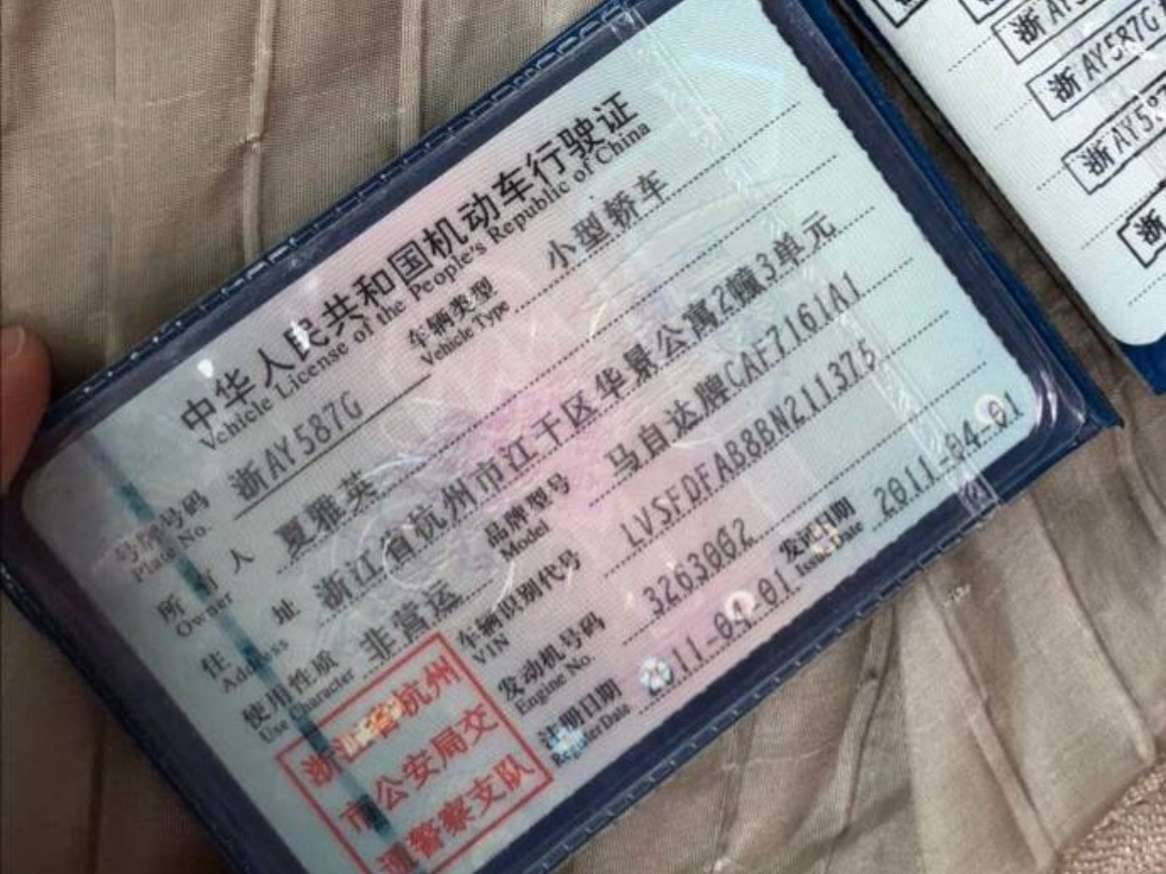 中华人民共和国机动车行驶证
Vehicle License of the People's Republic of China
号牌号码 浙AY587G 车辆类型 小型轿车
Plate No. Vehicle Type
所有人 夏雅英
Owner
住址 浙江省杭州市江干区华景公寓2幢3单元
Address
使用性质 非营运 品牌型号 马自达牌CAF7161A1
Use Character Model
浙江省杭州
市公安局交
通警察支队
车辆识别代号 LVSFDFAB8BN211375
VIN
发动机号码 3263002
Engine No.
注册日期 2011-04-01 发证日期 2011-04-01
Register Date Issue Date
浙AY587G
浙AY587